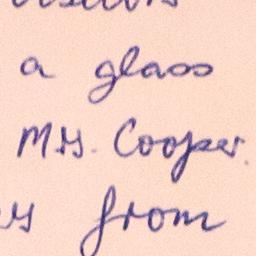 a glass
Mrs. Cooper.
from